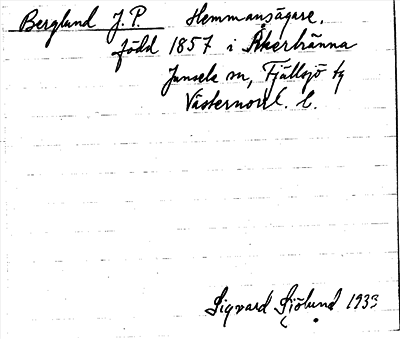 Berglund J. P. Hemmansägare.
född 1857 i Åkerbränna
Junsele sn, Fjällsjö tg
Västernorrl. l.
Sigvard Sjölund 1933